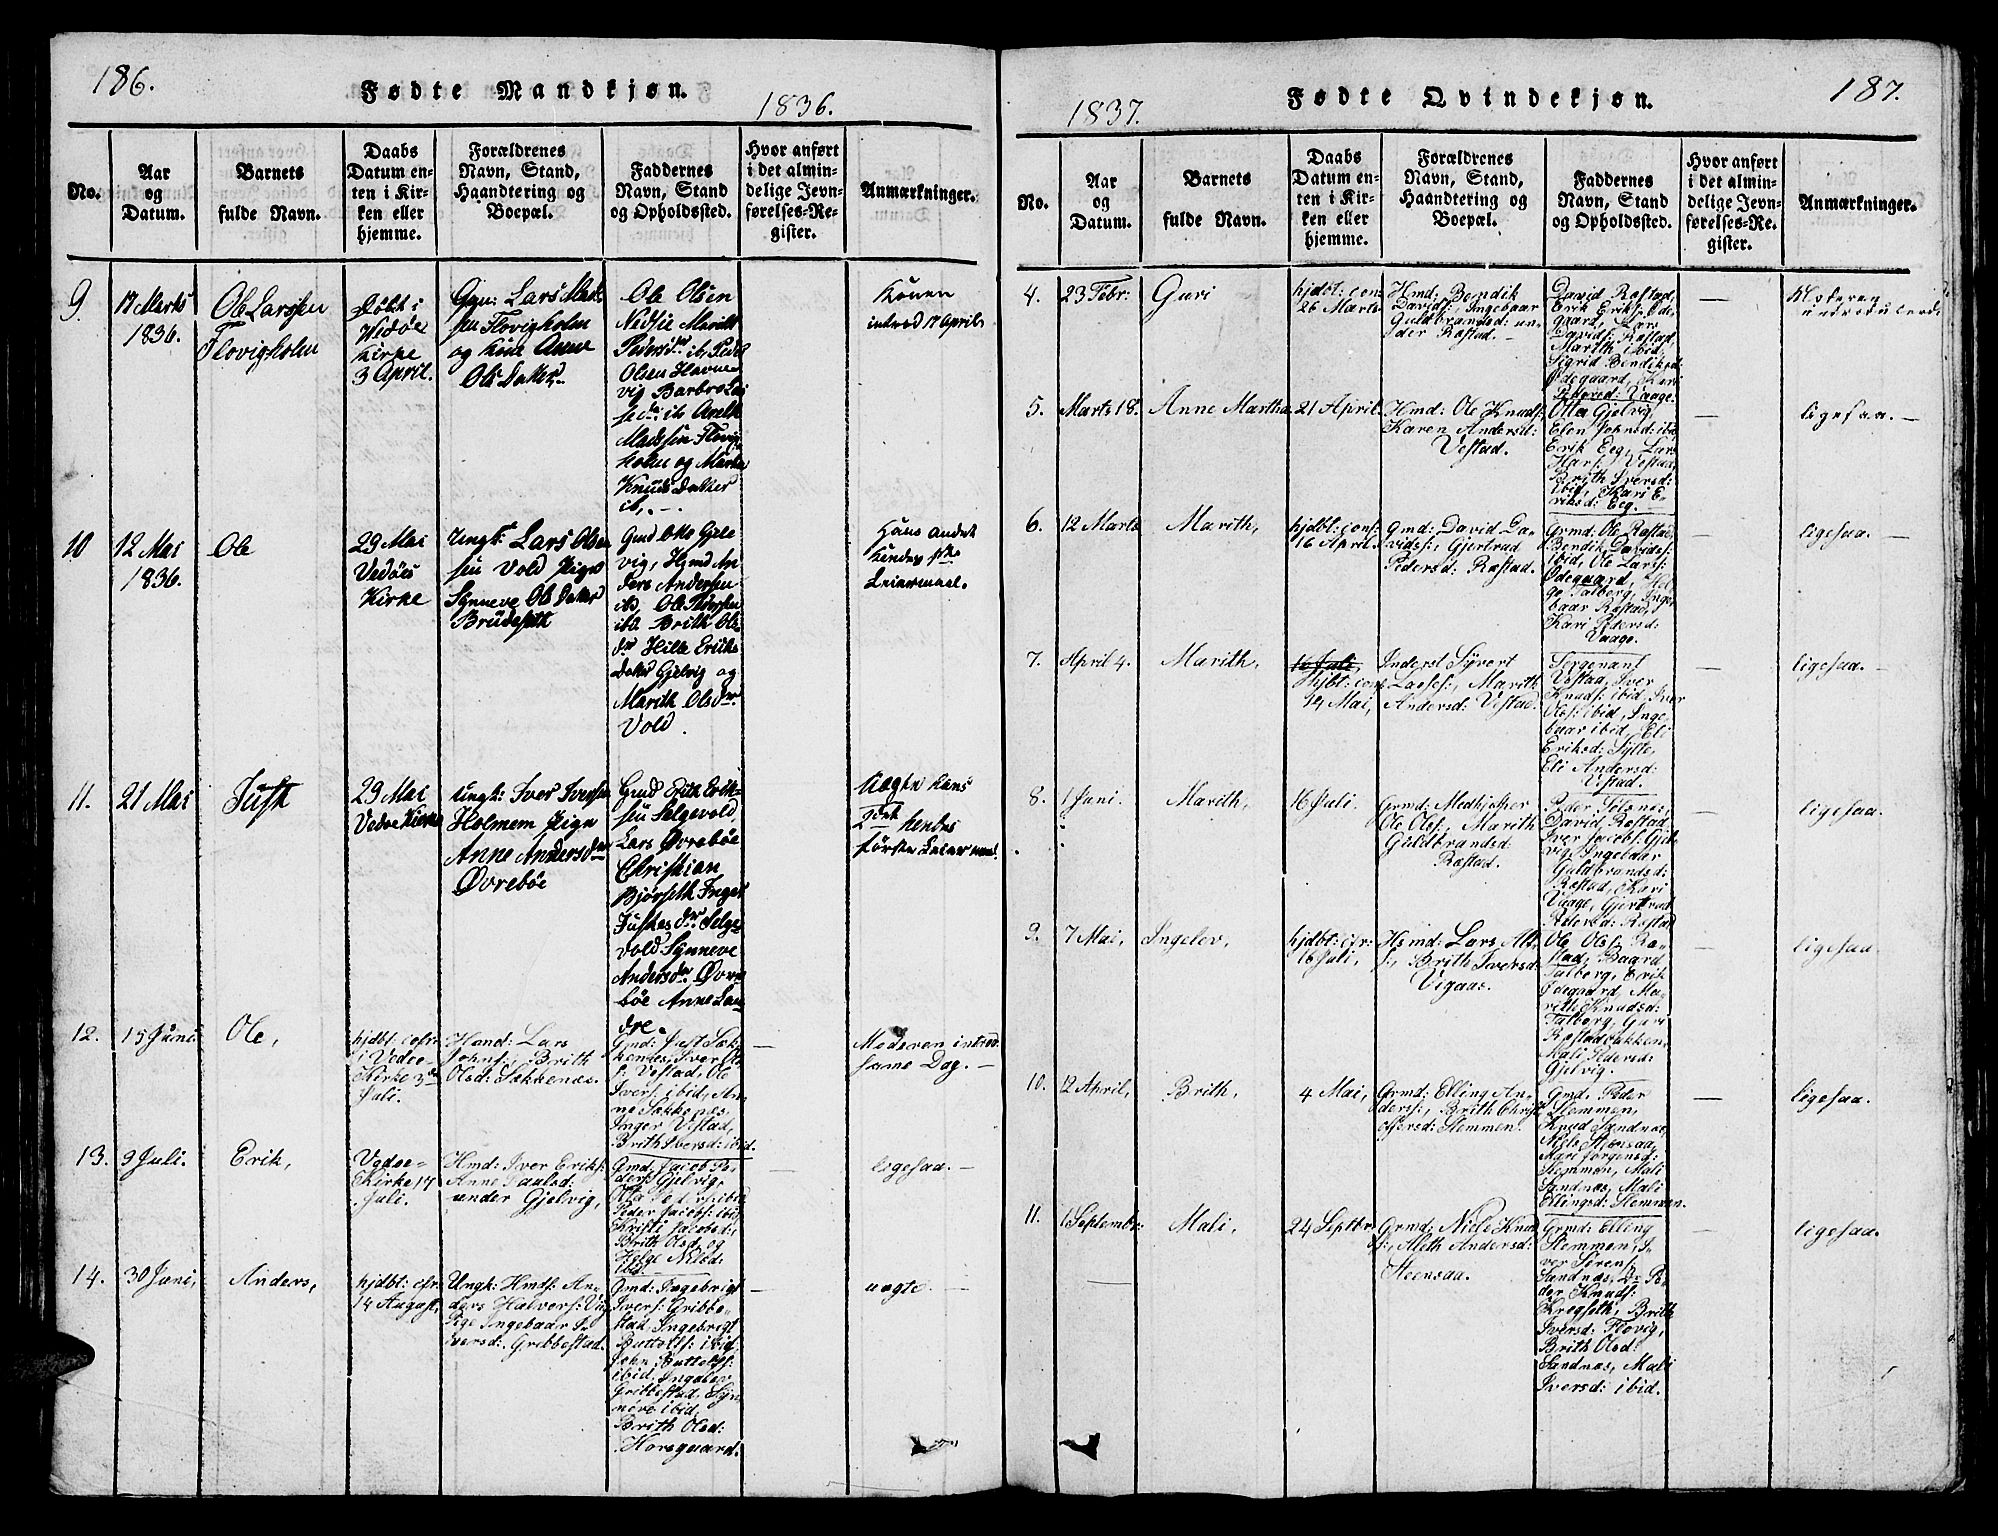 186.
Fødte Mandkjøn.
1836.
No.
Aar
og
Datum.
Barnets
fulde Navn.
Daabs
Datum en-
ten i Kir-
ken eller
hjemme.
Forældrenes
Navn, Stand,
Haandtering og
Boepæl.
Faddernes
Navn, Stand
og Opholdssted.
Hvor anført
i det almin-
delige Jevn-
førelses-Re-
gister.
Anmærkninger.
9.
17 Marts
1836.
Ole Larssen
Flovigholm
Døbt i
Vedøe
Kirke
3 April.
Gm: Lars Mad-
sen Flovigholm
og Kone Anne
Ols Datter
Ole Olsen
Marith
Pedersdr ib, Peder
Olsen Havne-
vig Barbro
ib
Madssen Flovig
holm og
Knuds Datter
ib.
Konen
introd 17 April
10
12 Mai
1836.
Ole
29 Mai
Vedøes
Kirke
Ungk: Lars Ole-
sen Vold Pige
Synneve Ols Datter
Brudeset
Gmd
vig, Hgmd An-
ders Andersen
ib, Ole Pedersen
ib Brith Ols-
dr Hille Eriks
Datter Gjelvig og
Marith Olsdr.
Vold.
Hans andet
hendes 1ste
Leiermaal.
11.
21 Mai
Just
29 Mai
Vedøe Kirke
Ungk: Iver Iversen
Holmem Pige
Anne Andersdr
Øvrebøe
Gmd Erik Erik-
sen Selgevold
Lars Øvrebøe
Christian
Bjørseth Inger
Justes dr. Selge-
vold Synneve
Andersdr. Øvre
bøe Anne Lan-
dre.
Uægte hans
2det hendes
første Leiermaal.
12.
15 Juni
Ole,
hjdbt: cfr:
i Vedøe-
Kirke 3de
Juli.
Hmd: Lars
Johns:, Brith
Olsd: Sekkenæs.
Gmd: Just Sæk-
kenes, Iver Ol-
s: Vestad, Ole
Ivers: ibid, An-
ne Sekkenæs,
Inger Vestad,
Brith Iversd: ibid.
—
Moderen introd:
same Dag. —
13.
9 Juli.
Erik,
Vedøe-
Kirke 17
Juli.
Hmd: Iver Eriks:
Anne Paulsd:
under Gjelvig,
Gmd: Jacob Pe-
ders: Gjelvig,
Ola Peders: ibid
Peder Jacobs: ibid
Kristi Jacobsd:,
Brith Olsd, og
Helge Nilsd:
ibid.
—
ligesaa. —
14.
30 Juni,
Anders,
hjdbt: cfr:
14 August,
Ungk: Hmds: An-
ders Halvors: Vig,
Pige Ingebaar I-
versd: Gribbestad.
Gmd: Ingebrigt
Ivers: Gribbe-
stad, Ingebrigt
Buttolfs: ibid,
John Buttolfs:
ibid, Ingelev
Gribbestad, Syn-
nøve ibid,
Brith Olsd:
Horsgaard.
—
uægte. —
1837.
Fødte Qvindekjøn.
187.
No.
Aar
og
Datum.
Barnets
fulde Navn.
Daabs
Datum en-
ten i Kir-
ken eller
hjemme.
Forældrenes
Navn, Stand,
Haandtering og
Boepæl.
Faddernes
Navn, Stand
og Opholdssted.
Hvor anført
i det almin-
delige Jevn-
førelses-Re-
gister.
Anmærkninger.
4.
23 Febr:
Guri
hjdbt: con:
26 Marts
Hmd: Bendik
Davids:, Ingebaar
Guldbrandsd: un-
der Røstad. —
David Røstad,
Erik Eriks: Øde-
gaard, Lars
Davids: Røstad,
Marith ibid,
Sigrid Bendiksd:
Ødegaard, Kari
Pedersd: Vaage.
—
Moderen
introduceret
5.
Marts 18.
Anne Martha
21 April.
Hmd: Ole Knuds:
Karen Andersd:
Vestad.
Otta Gjelvig,
Elen Johnsd: ibid,
Erik Eeg, Lars
Hans: Vestad,
Berith Iversd:
ibid, Kari E-
riksd: Eeg. —
—
ligesaa. —
6.
12 Marts
Marith,
hjdbt: conf:
16 April.
Gmd: David Da-
vids:, Gjertrud
Pedersd: Røstad.
Grmd: Ole Røstad,
Bendik Davids:
ibid, Ole Lars:
Ødegaard, Hel-
ge Talberg, Inge-
baar Røstad,
Kari Pedersd:
Vaage.
—
ligesaa. —
7.
April 4.
Marith,
16 Juli,
hjbt: conf
14 Mai,
Inderst Syvert
Lasses:, Marith
Andersd: Vestad.
Sergenant
Vestad, Iver
Knuds: ibid, Iver
Ols: ibid, Inge-
baar ibid, Eli
Eriksd: Sylte,
Eli Andersd:
Vestad.
—
ligesaa. —
8.
1 Juni.
Marith,
16 Juli.
Grmd: Medhjelper
Ole Ols:, Marith
Guldbrandsd:
Røstad.
Peder Silsnes,
David Røstad,
Iver Jacobs: Gjel-
vig, Ingebaar
Guldbrandsd:
Røstad, Kari
Vaage, Gjertrud
Pedersd: Røstad
—
ligesaa. —
9.
7 Mai,
Ingelev,
hjdbt: cfr:
16 Juli,
Hsmd: Lars
:, Brith Iversd:
Vigaas.
Ole Ols: Rø-
stad, Baard
Talberg, Erik
Ødegaard, Ma-
rith Knudsd:
Talberg, Guri
Røstadbakken,
Mali Pedersd:
Gjelvig.
—
ligesaa.
10.
12 April,
Brith,
4 Mai,
Grmd: Elling An-
ders:, Brith Christ-
offersd: Slemmen.
Gmd: Peder
Slemmen,
Knud Sandnæs,
Niels Stensaa,
Mari Jørgensd:
Slemmen, Mali
Sandnæs, Mali
Ellingsd: Slemmen.
—
ligesaa.
11.
1 Septembr:
Mali,
24 Septbr,
Grmd: Niels Knu
ds:, Aleth Andersd:
Steensaa.
Grmd: Elling
Slemmen, I-
ver Sørens:
Sandnæs, Dr Pe-
der Knuds:
Kregseth, Brith
Iversd: Flovig,
Brith Olsd:
Sandnæs, Mali
Iversd: ibid.
—
ligesaa.